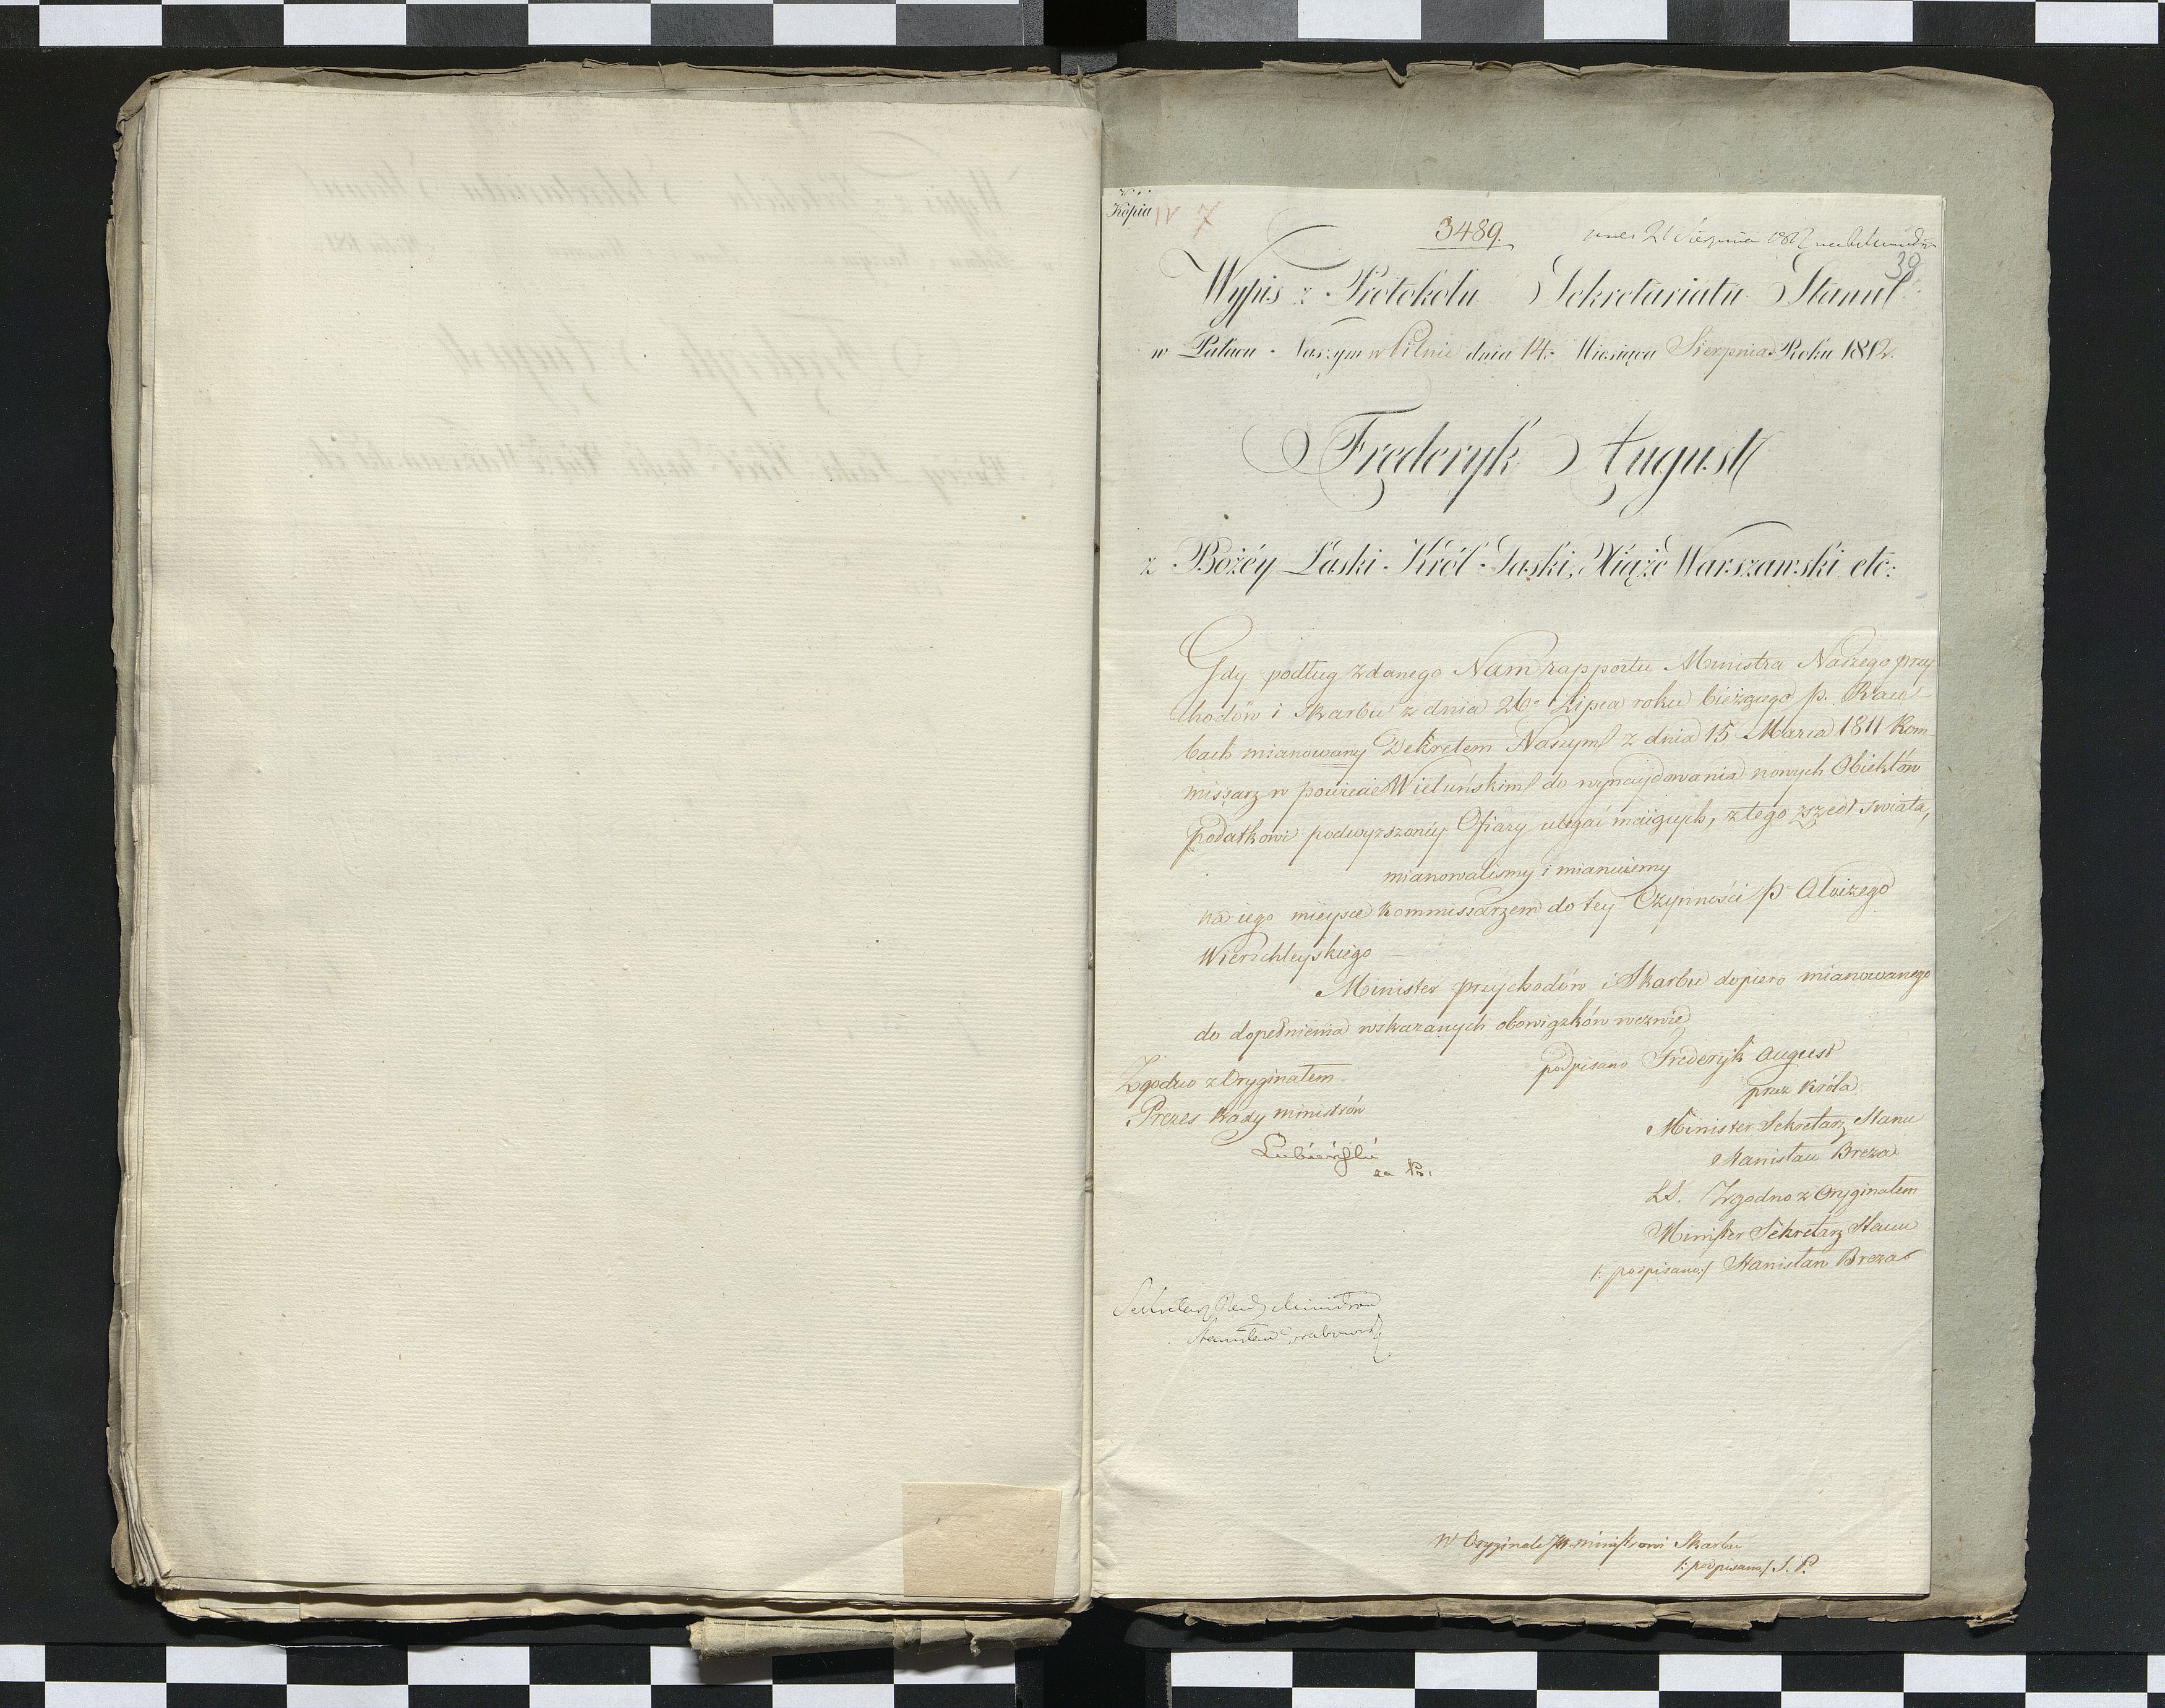 Kopia IV 7
3489.
39
Wypis z Protokolu Sekretariatu Stanu
w Pałacu Naszym w Pilnie dnia 14. Miesiąca Sierpnia Roku 1812.
Frederyk August
z Bożéy Łaski Król Saski, Xiąże Warszawski etc:
Gdy podług zdanego Nam rapportu Ministra Naszego przy
chodów i Skarbu z dnia 26. Lipca roku bieżącego p.
bach mianowany Dekretem Naszym z dnia 15 Marca 1811 Kom-
missarz w powiecie Wieluńskim do wynaydowania nowych Obiektów
podatkowi podwyższoney Ofiary ulegać maiących, z tego zszedł świata,
mianowaliśmy i mianuiemy
na iego mieysce Kommissarzem do tey Czynności p. Aloizego
Wierzchleyskiego
Minister przychodów i Skarbu dopiero mianowanego
do dopełnienia wskazanych obowiązków wezwie
podpisano Frederyk August
przez Króla
Minister Sekretarz Stanu
Stanisław Breza
LS. Zgodno z Oryginałem
Minister Sekretarz Stanu
/: podpisano:/ Stanisław Breza
Zgodno z Oryginałem
Prezes Rady ministrów
Lubieński
za Pr.
Sekretarz Rady Ministrow
Stanisław Grabowski
W Oryginale JW. ministrowi Skarbu
/: podpisano:/ S. P.